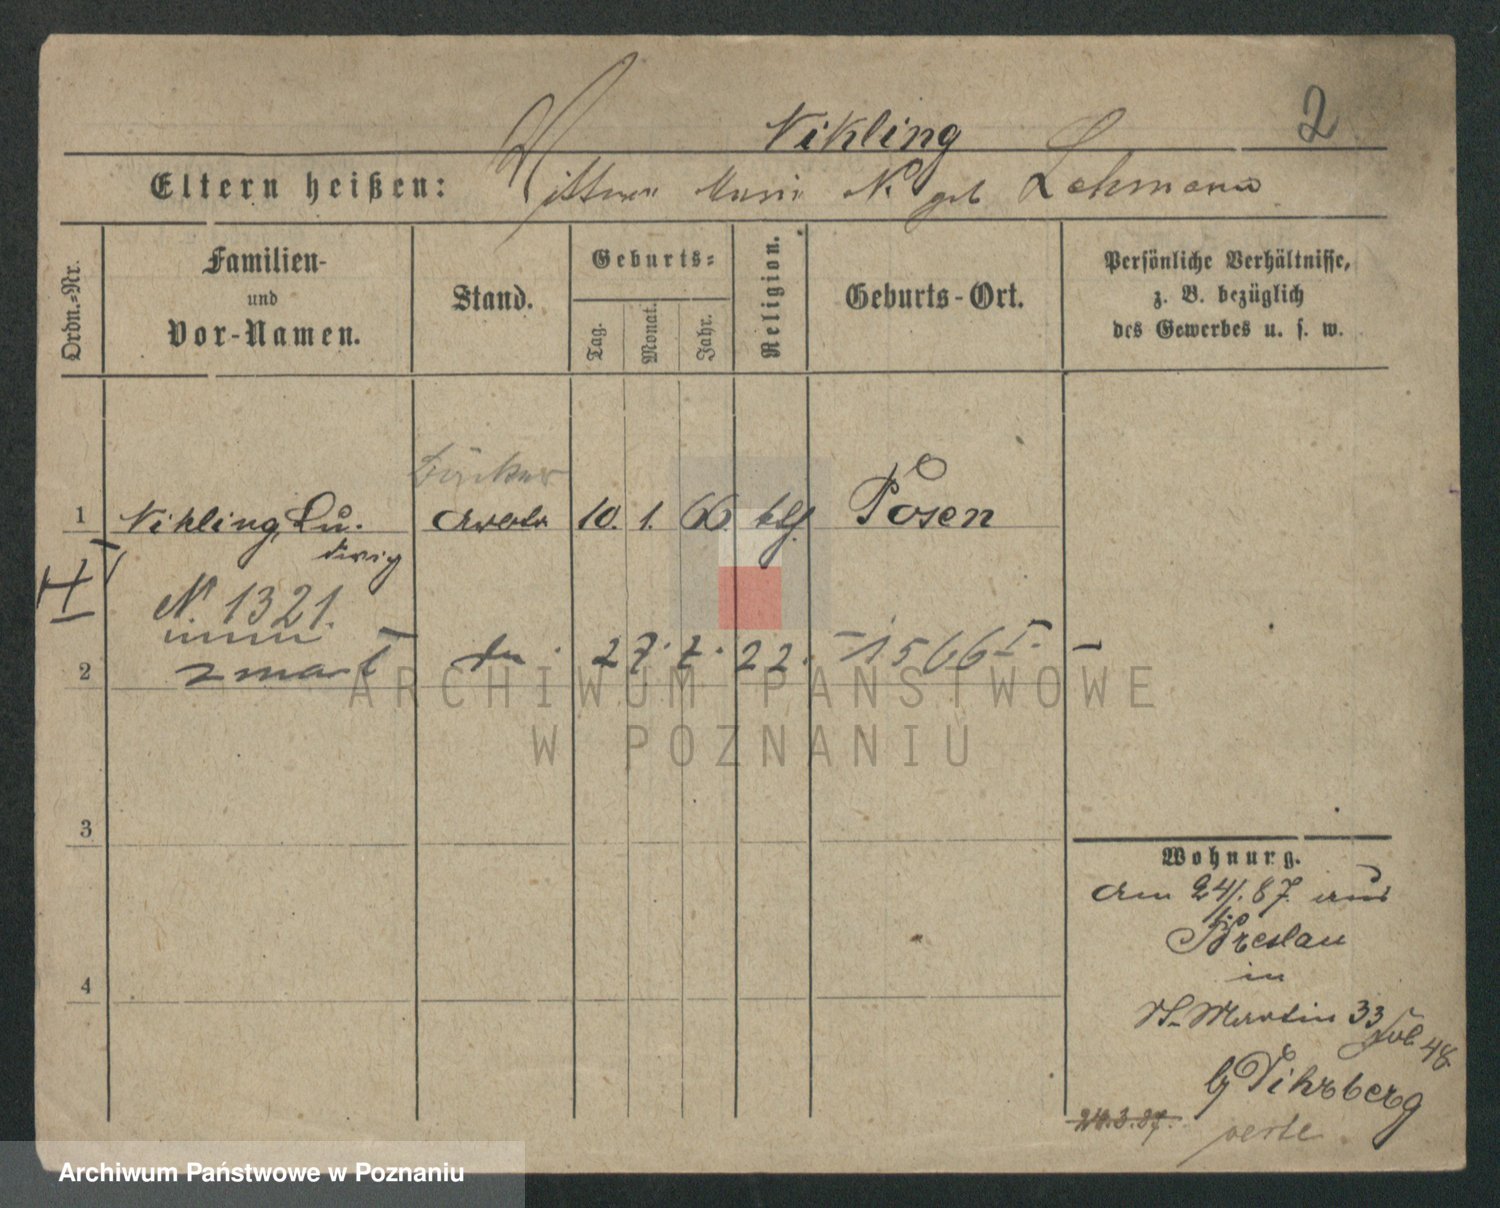 2
Nikling
Eltern heißen: Marie N. geb Lehmann
Ordn.=Nr.
Familien-
und
Vor-Namen.
Stand.
Geburts=
Tag.
Monat.
Jahr.
Religion.
Geburts-Ort.
Persönliche Verhältnisse,
z. B. bezüglich
des Gewerbes u. s. w.
Bäcker
1 Nikling, Lu- 10. 1. 66. ktl. Posen
dwig
N. 1321.
2 zmarł dn. 27. 7. 22. 1566
ARCHIWUM PAŃSTWOWE
W POZNANIU
3
4
Wohnung.
am 24/1. 87. aus
Breslau
in
St. Martin 33
48
24.3.87.
Archiwum Państwowe w Poznaniu